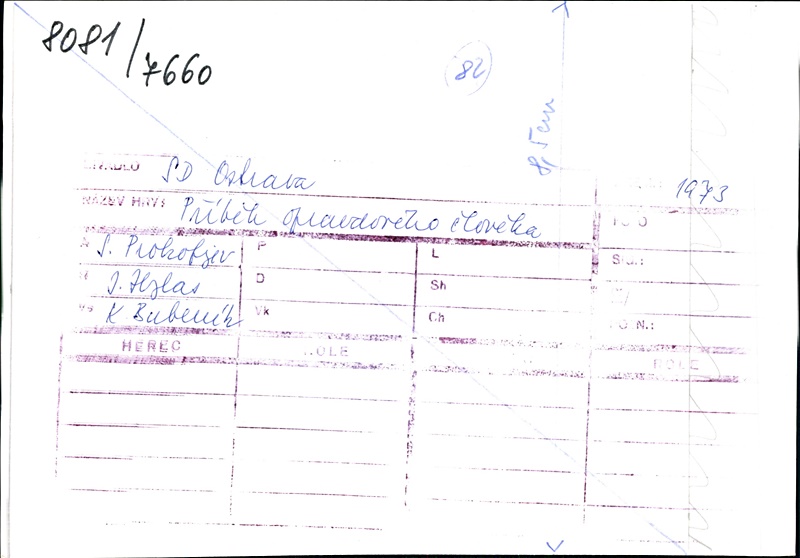 8081/7660
82
8,5cm
DIVADLO SD Ostrava
1973
NÁZEV HRY: Příběh opravdového člověka
FOTO
S. Prokofjev P L
J. Hzlas D Sh
K Bubeník Vk Ch
HEREC ROLE ROLE